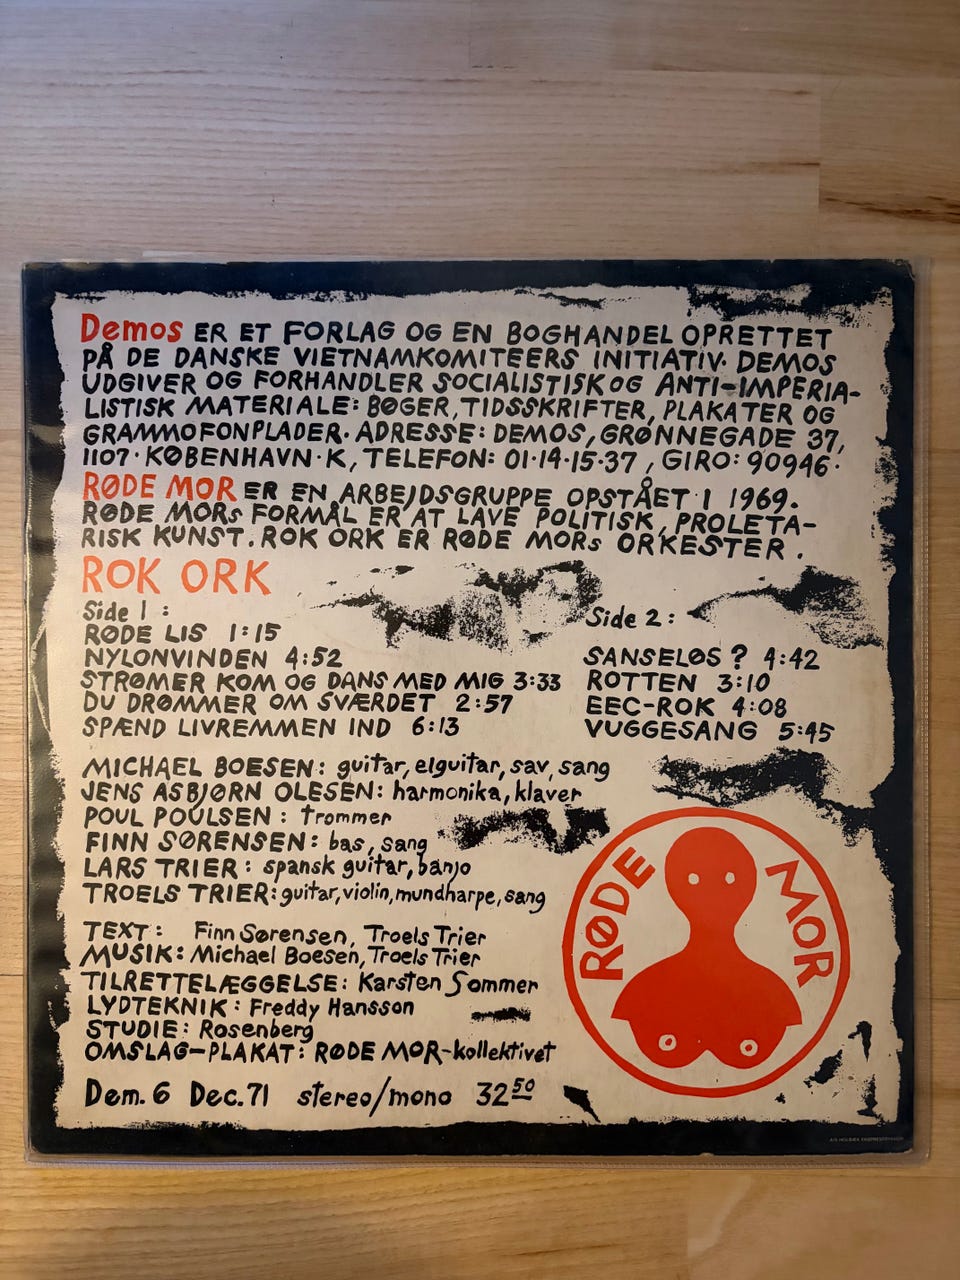 Demos ER ET FORLAG OG EN BOGHANDEL OPRETTET
PÅ DE DANSKE VIETNAMKOMITEERS INITIATIV. DEMOS
UDGIVER OG FORHANDLER SOCIALISTISK OG ANTI-IMPERIA-
LISTISK MATERIALE: BØGER, TIDSSKRIFTER, PLAKATER OG
GRAMMOFONPLADER. ADRESSE: DEMOS, GRØNNEGADE 37,
1107·KØBENHAVN·K, TELEFON: 01·14·15·37, GIRO: 90946.
RØDE MOR ER EN ARBEJDSGRUPPE OPSTÅET I 1969.
RØDE MORs FORMÅL ER AT LAVE POLITISK, PROLETA-
RISK KUNST. ROK ORK ER RØDE MORs ORKESTER.
ROK ORK
Side 1:
RØDE LIS 1:15
NYLONVINDEN 4:52
STRØMER KOM OG DANS MED MIG 3:33
DU DRØMMER OM SVÆRDET 2:57
SPÆND LIVREMMEN IND 6:13
Side 2:
SANSELØS? 4:42
ROTTEN 3:10
EEC-ROK 4:08
VUGGESANG 5:45
MICHAEL BOESEN: guitar, elguitar, sav, sang
JENS ASBJØRN OLESEN: harmonika, klaver
POUL POULSEN: trommer
FINN SØRENSEN: bas, sang
LARS TRIER: spansk guitar, banjo
TROELS TRIER: guitar, violin, mundharpe, sang
TEXT: Finn Sørensen, Troels Trier
MUSIK: Michael Boesen, Troels Trier
TILRETTELÆGGELSE: Karsten Sommer
LYDTEKNIK: Freddy Hansson
STUDIE: Rosenberg
OMSLAG-PLAKAT: RØDE MOR-kollektivet
Dem. 6 Dec. 71 stereo/mono 32 50
RØDE MOR